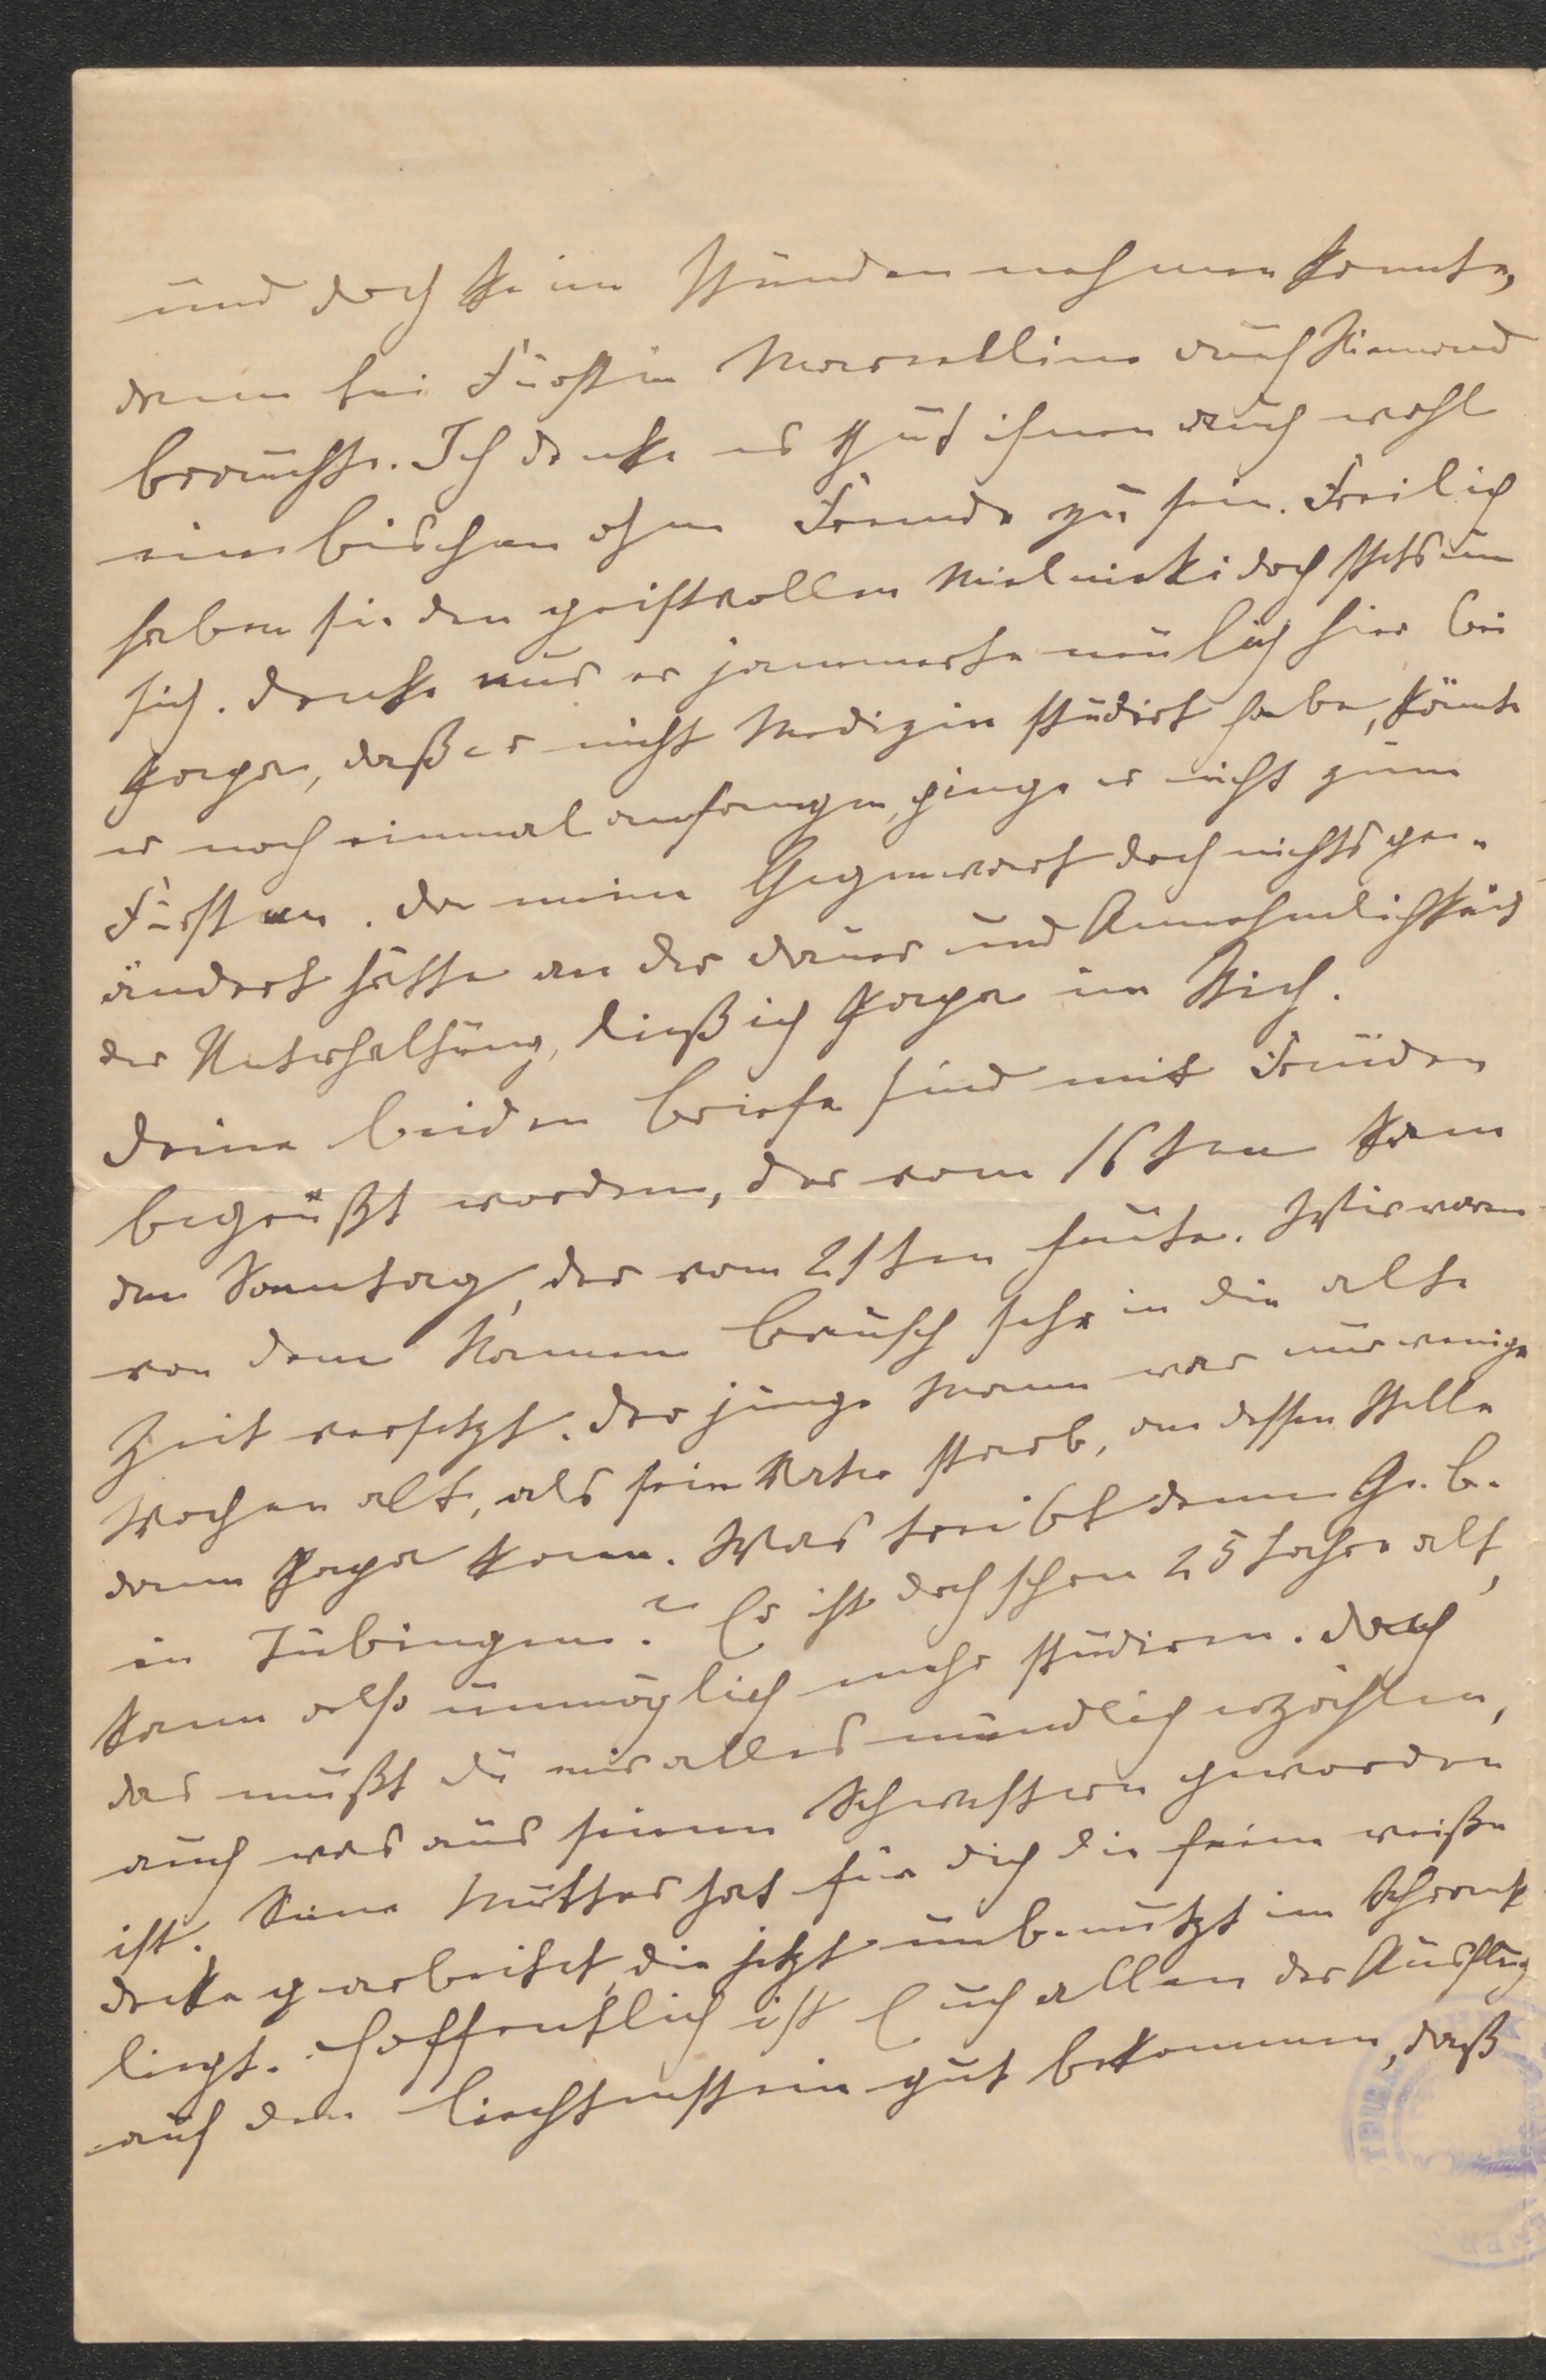 und doch keine Stunden nehmen konnte,
denn bei Fürstin Marcelline auch Niemand
brauchte. Ich denke es thut ihnen auch wohl
ein bischen ohne Fremde zu sein. Freilich
haben sie den geistvollen Mielnicki doch stets um
sich. Denke nur er jammerte neulich hier bei
Papa, daß er nicht Medizin studirt habe, könnte
er noch einmal anfangen, ginge er nicht zum
Fürsten. Da meine Gegenwart doch nichts ge-
ändert hätte an der Dauer und Annehmlichkeit
der Unterhaltung, ließ ich Papa im Stich.
Deine beiden Briefe sind mit Freuden
begrüßt worden, der vom 16ten kam
den Sonntag, der vom 21ten heute. Wir waren
von dem Namen Brusch sehr in die alte
Zeit versetzt. Der junge Mann war nur wenige
Wochen alt, als sein Vater starb, an dessen Stelle
dann Papa kam. Was treibt denn G. B.
in Tübingen? Er ist doch schon 25 Jahre alt,
kann also unmöglich mehr studiren. Doch
das mußt du mir alles mündlich erzählen,
auch was aus seinen Schwestern geworden
ist. Seine Mutter hat für dich die feine weiße
Decke gearbeitet, die jetzt unbenutzt im Schrank
liegt. Hoffentlich ist Euch allen der Ausflug
auf den Liechtenstein gut bekommen, daß